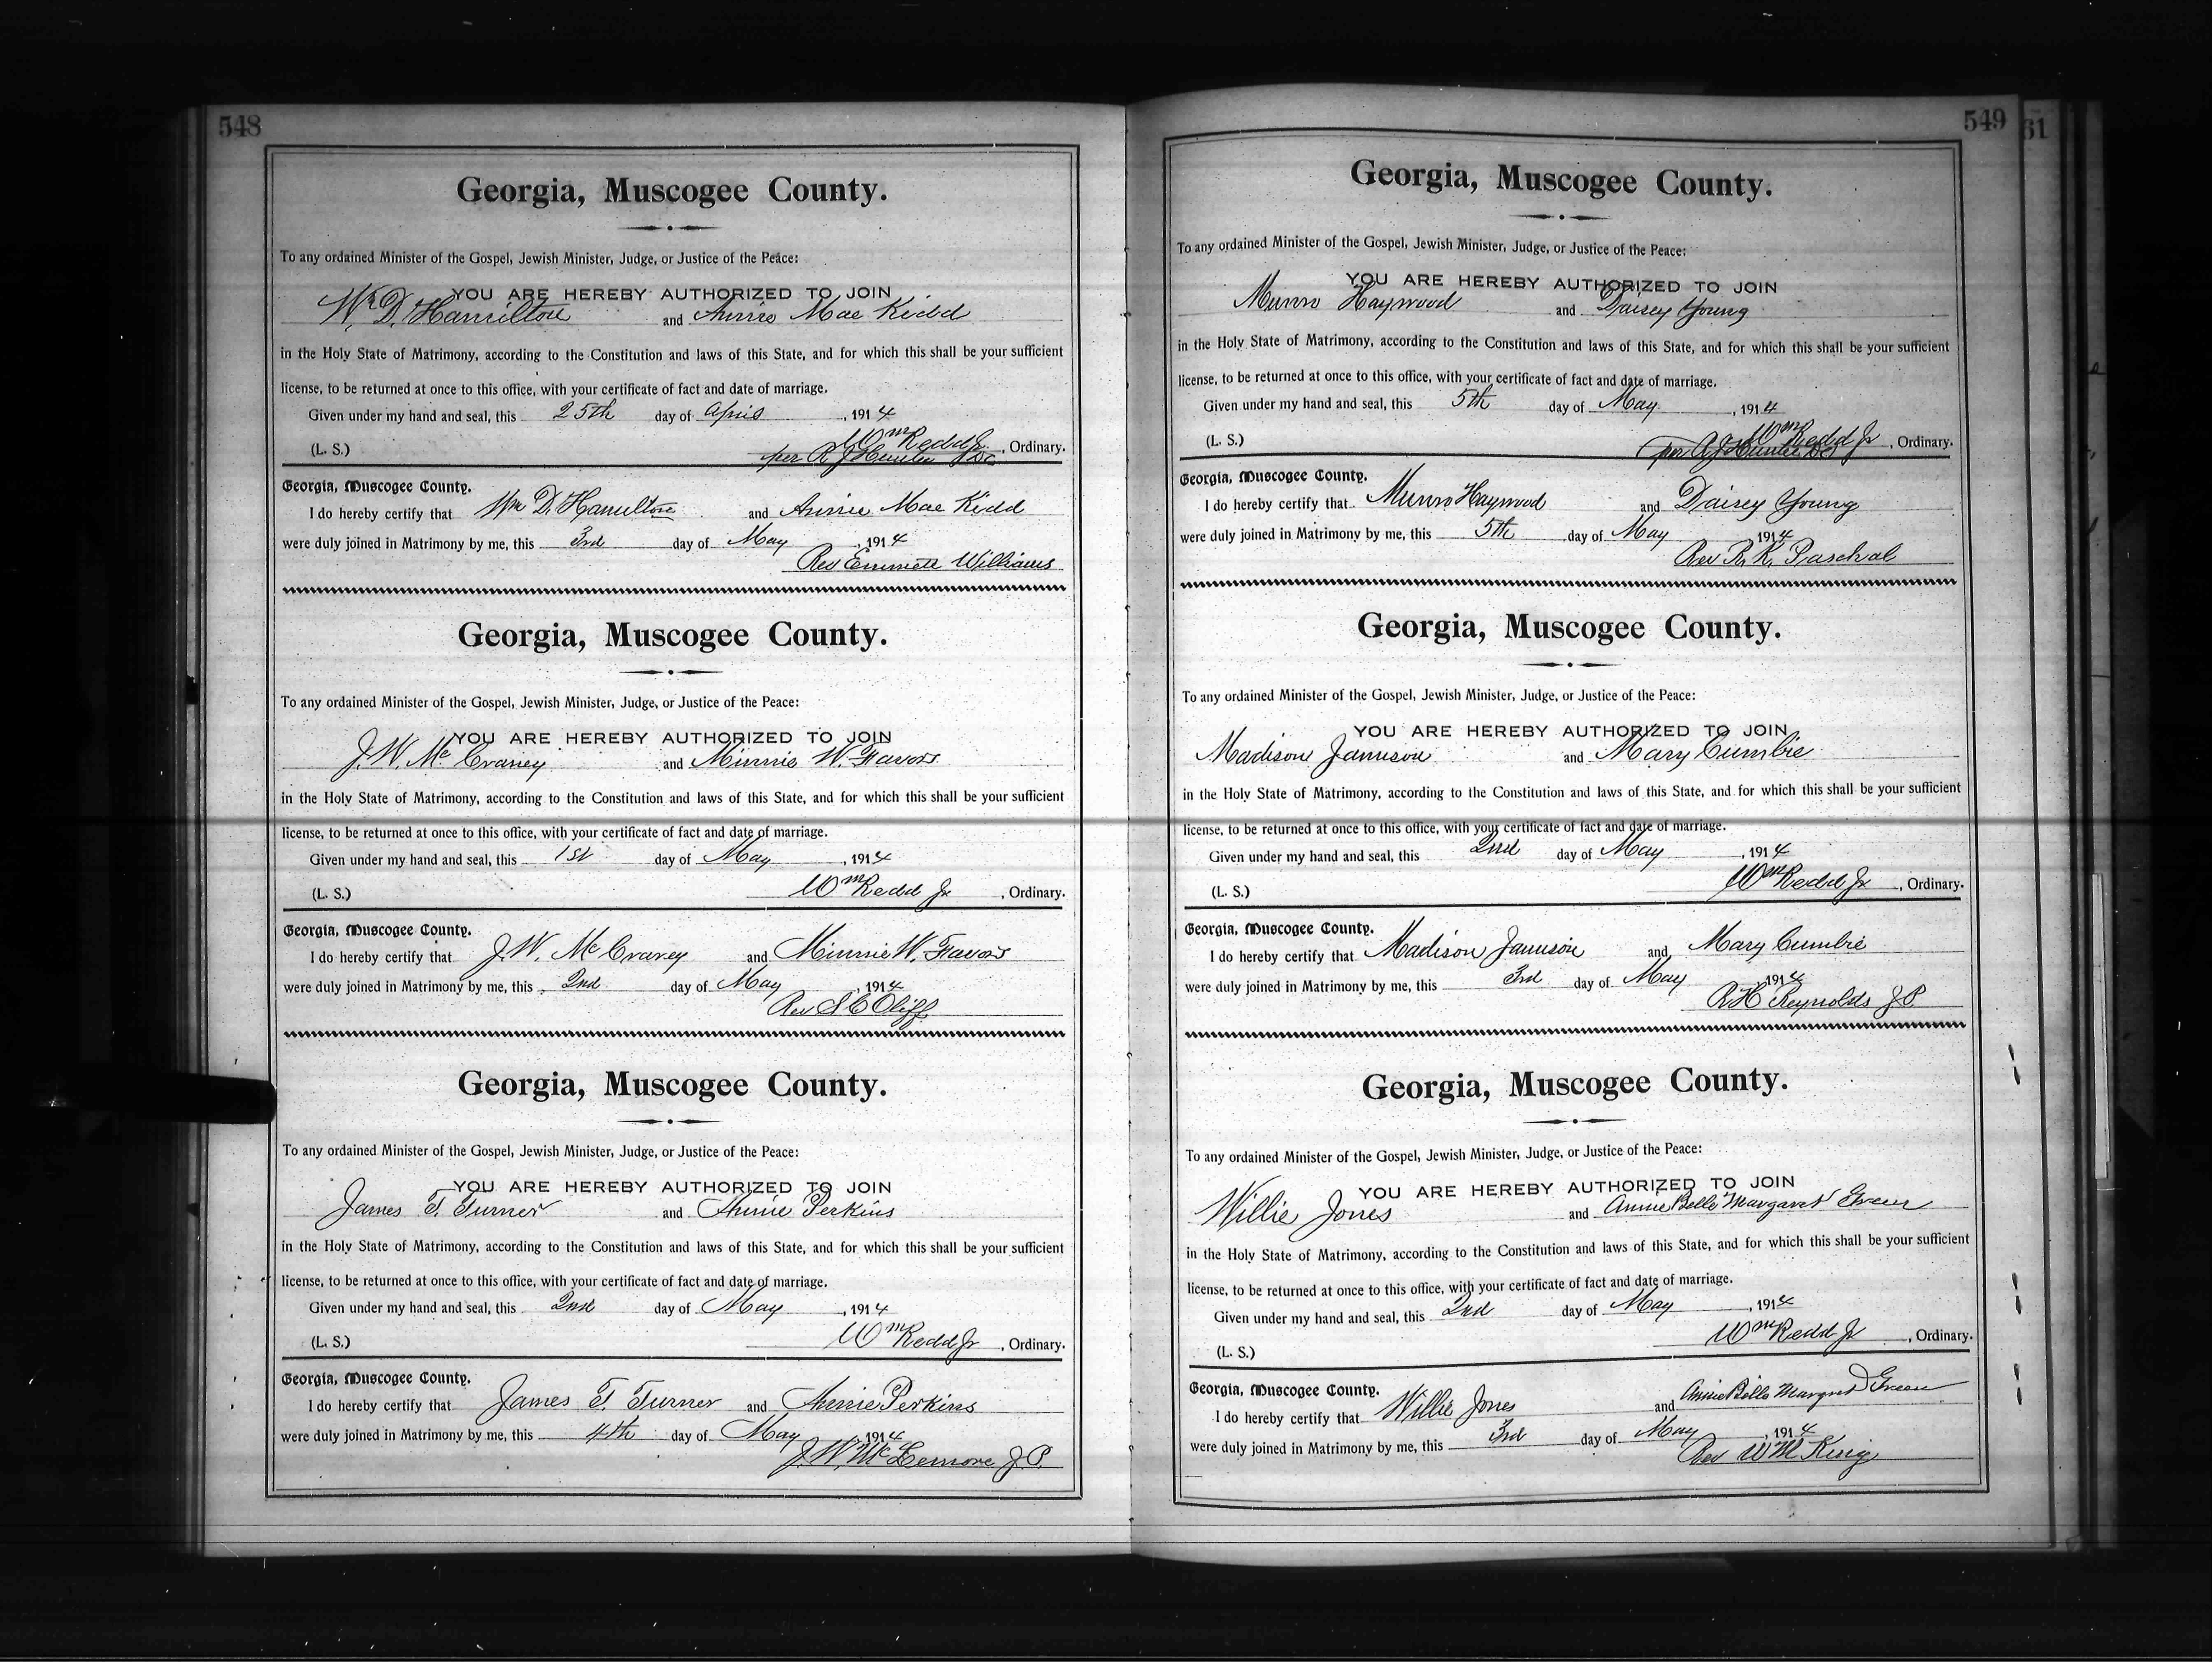 548
Georgia, Muscogee County.
To any ordained Minister of the Gospel, Jewish Minister, Judge, or Justice of the Peace:
YOU ARE HEREBY AUTHORIZED TO JOIN
Wm D. Hamilton and Annie Mae Kidd
in the Holy State of Matrimony, according to the Constitution and laws of this State, and for which this shall be your sufficient
license, to be returned at once to this office, with your certificate of fact and date of marriage.
Given under my hand and seal, this 25th day of April, 1914
(L. S.) Wm Redd Jr, Ordinary.
per R J Hunter
Georgia, Muscogee County.
I do hereby certify that Wm D. Hamilton and Annie Mae Kidd
were duly joined in Matrimony by me, this 3rd day of May, 1914
Rev Emmett Williams
Georgia, Muscogee County.
To any ordained Minister of the Gospel, Jewish Minister, Judge, or Justice of the Peace:
YOU ARE HEREBY AUTHORIZED TO JOIN
J. W. McCraney and Minnie W. Favors
in the Holy State of Matrimony, according to the Constitution and laws of this State, and for which this shall be your sufficient
license, to be returned at once to this office, with your certificate of fact and date of marriage.
Given under my hand and seal, this 1st day of May, 1914
(L. S.) Wm Redd Jr, Ordinary.
Georgia, Muscogee County.
I do hereby certify that J. W. McCraney and Minnie W. Favors
were duly joined in Matrimony by me, this 2nd day of May, 1914
Rev S C Oliff
Georgia, Muscogee County.
To any ordained Minister of the Gospel, Jewish Minister, Judge, or Justice of the Peace:
YOU ARE HEREBY AUTHORIZED TO JOIN
James T. Turner and Annie Perkins
in the Holy State of Matrimony, according to the Constitution and laws of this State, and for which this shall be your sufficient
license, to be returned at once to this office, with your certificate of fact and date of marriage.
Given under my hand and seal, this 2nd day of May, 1914
(L. S.) Wm Redd Jr, Ordinary.
Georgia, Muscogee County.
I do hereby certify that James T. Turner and Annie Perkins
were duly joined in Matrimony by me, this 4th day of May, 1914
J. W. McLemore J. P.
549
61
Georgia, Muscogee County.
To any ordained Minister of the Gospel, Jewish Minister, Judge, or Justice of the Peace:
YOU ARE HEREBY AUTHORIZED TO JOIN
Munro Haywood and Daisey Young
in the Holy State of Matrimony, according to the Constitution and laws of this State, and for which this shall be your sufficient
license, to be returned at once to this office, with your certificate of fact and date of marriage.
Given under my hand and seal, this 5th day of May, 1914
(L. S.) Wm Redd Jr, Ordinary.
per R J Hunter
Georgia, Muscogee County.
I do hereby certify that Munro Haywood and Daisey Young
were duly joined in Matrimony by me, this 5th day of May, 1914
Rev R. K. Paschal
Georgia, Muscogee County.
To any ordained Minister of the Gospel, Jewish Minister, Judge, or Justice of the Peace:
YOU ARE HEREBY AUTHORIZED TO JOIN
Madison Jamison and Mary Cumbie
in the Holy State of Matrimony, according to the Constitution and laws of this State, and for which this shall be your sufficient
license, to be returned at once to this office, with your certificate of fact and date of marriage.
Given under my hand and seal, this 2nd day of May, 1914
(L. S.) Wm Redd Jr, Ordinary.
Georgia, Muscogee County.
I do hereby certify that Madison Jamison and Mary Cumbie
were duly joined in Matrimony by me, this 3rd day of May, 1914
R H Reynolds J P.
Georgia, Muscogee County.
To any ordained Minister of the Gospel, Jewish Minister, Judge, or Justice of the Peace:
YOU ARE HEREBY AUTHORIZED TO JOIN
Willie Jones and Annie Belle Margaret Green
in the Holy State of Matrimony, according to the Constitution and laws of this State, and for which this shall be your sufficient
license, to be returned at once to this office, with your certificate of fact and date of marriage.
Given under my hand and seal, this 2nd day of May, 1914
(L. S.) Wm Redd Jr, Ordinary.
Georgia, Muscogee County.
I do hereby certify that Willie Jones and Annie Belle Margret Green
were duly joined in Matrimony by me, this 3rd day of May, 1914
Rev W M King